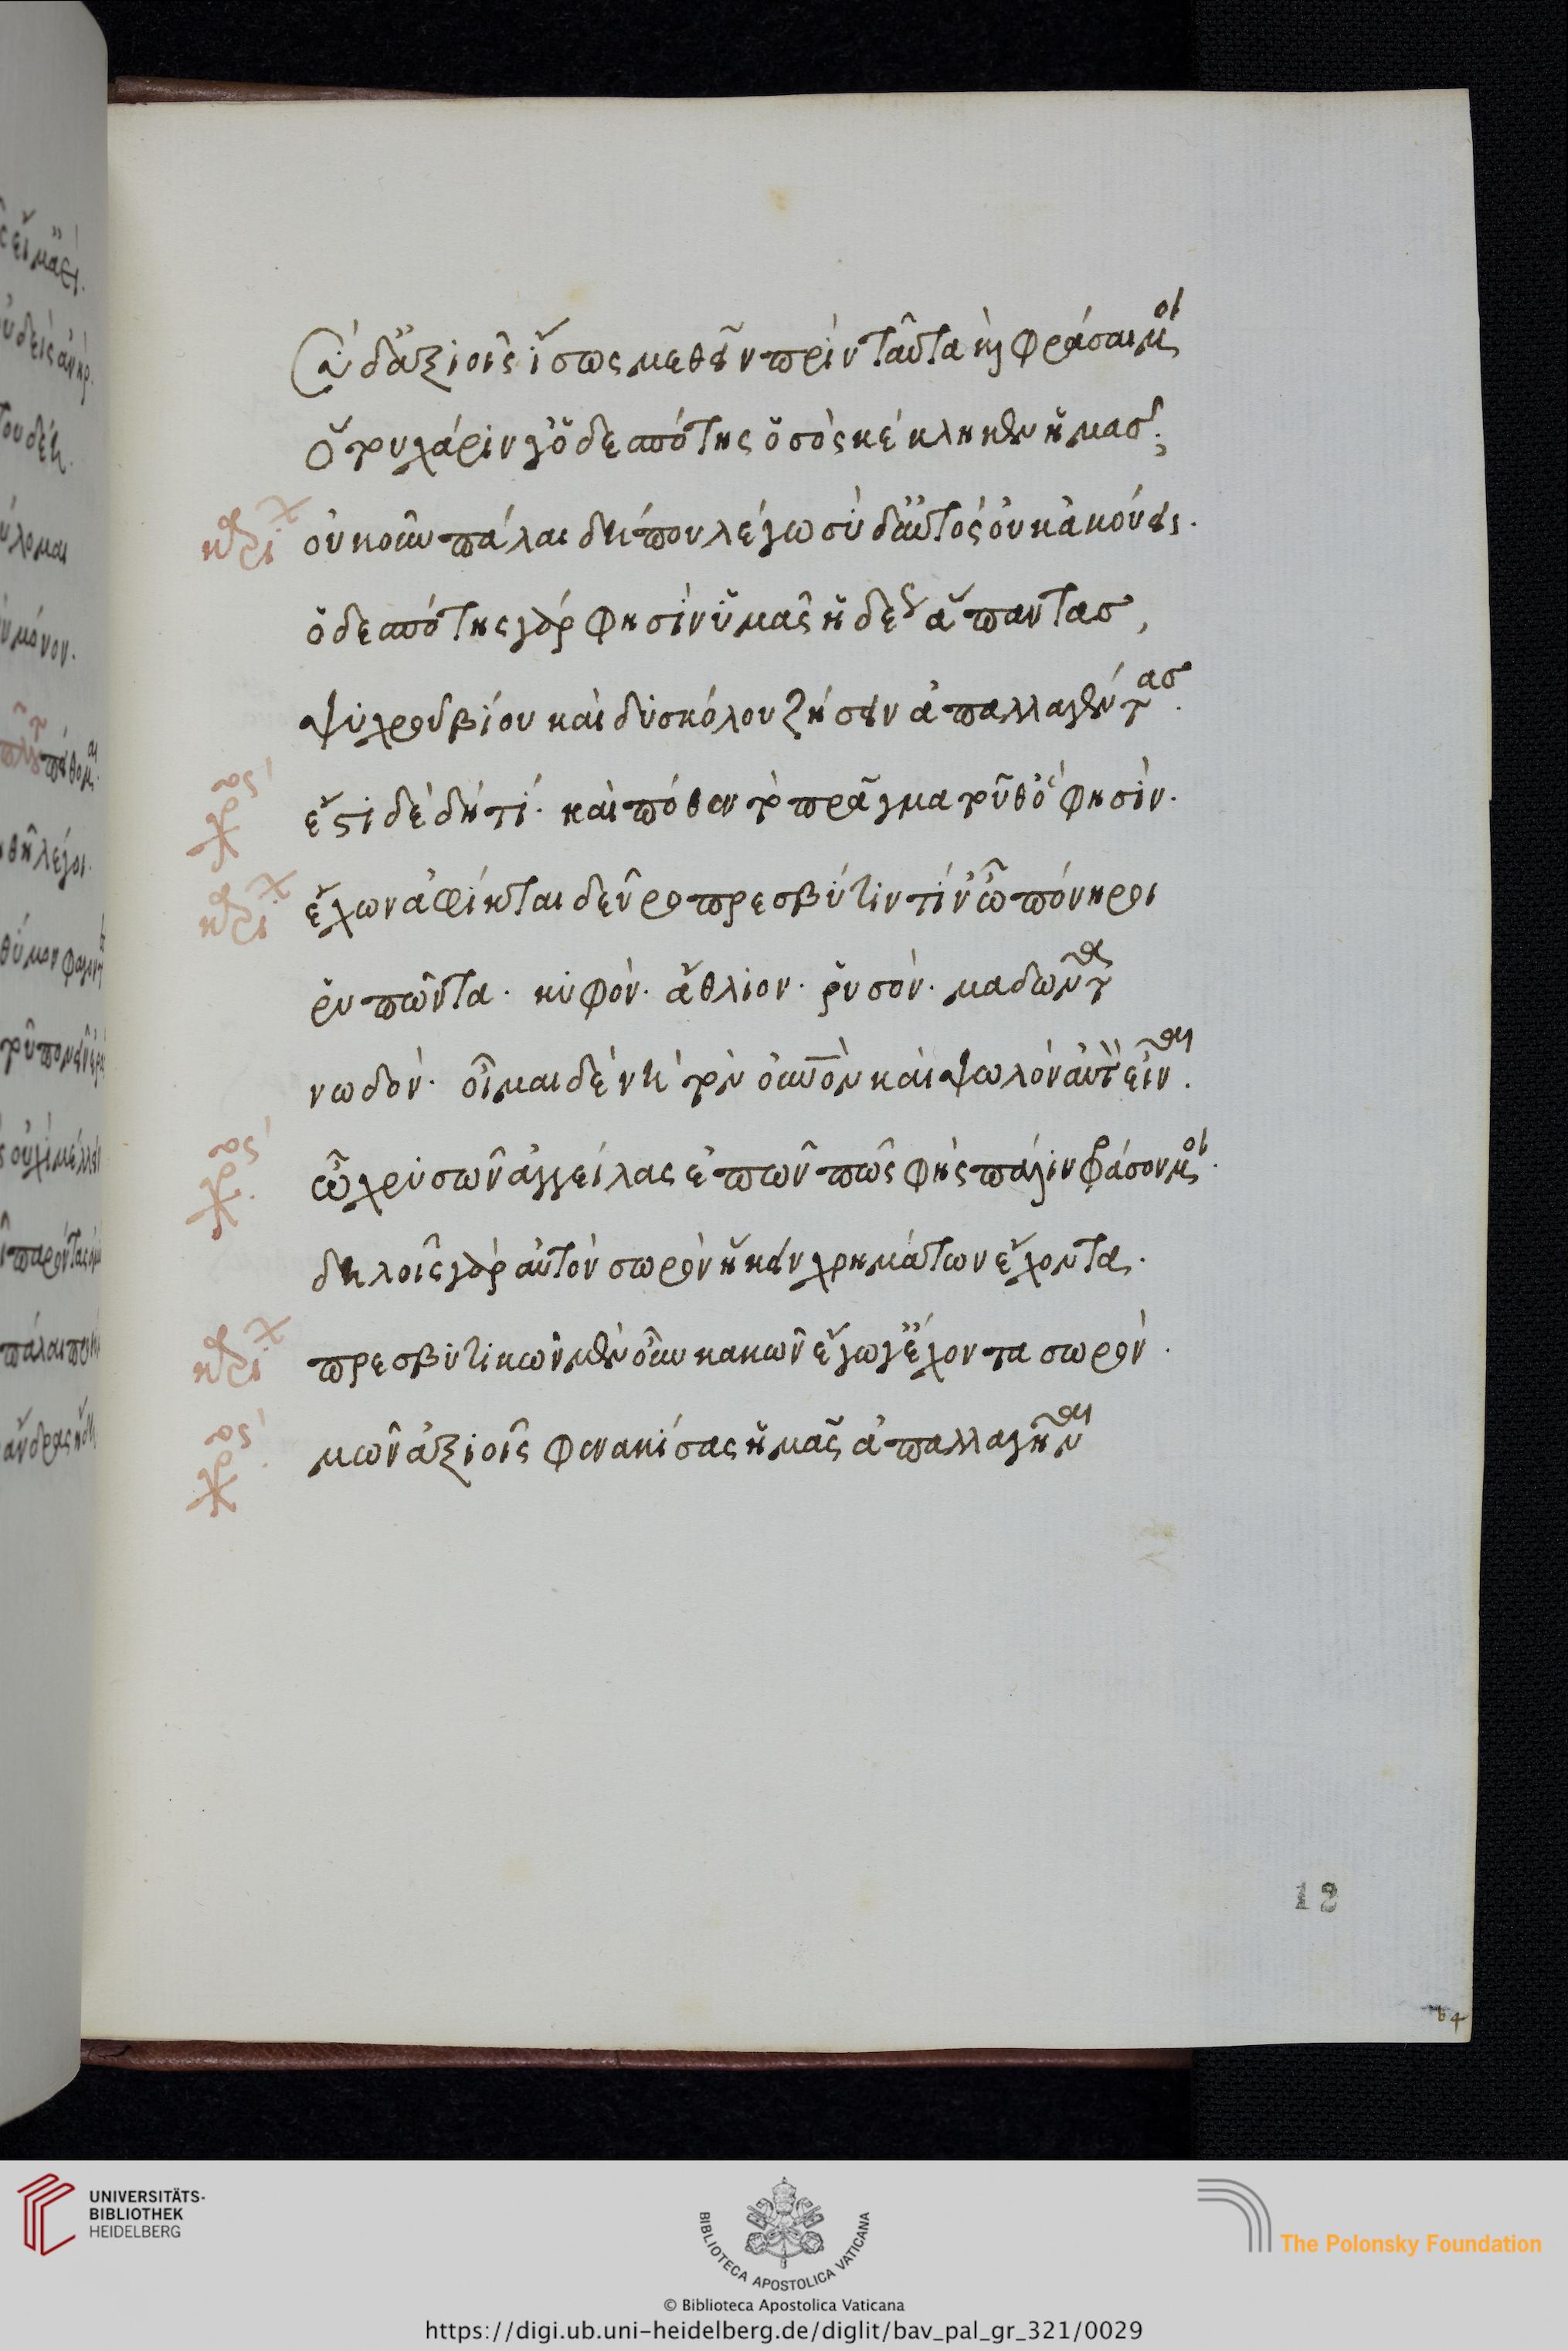 σὺ δ' ἀξιοῖς ἴσως μεθεῖν πρὶν ταῦτα καὶ φράσαι μοι
ὅτου χάριν γ' ὁ δεσπότης ὁ σὸς κέκληκεν ἡμᾶς;
οὐκοῦν πάλαι δήπου λέγω σὺ δ' αὐτὸς οὐκ ἀκούεις.
ὁ δεσπότης γάρ φησιν ὑμᾶς ἡδέως ἅπαντας,
ψυχροῦ βίου καὶ δυσκόλου ζήσειν ἀπαλλαγέντας.
ἔστι δὲ δὴ τί. καὶ πόθεν τὸ πρᾶγμα τοῦθ' ὅ φησίν.
ἔχων ἀφίκται δεῦρο πρεσβύτιν τίν' ὦ πόνηροι
ῥυπῶντα. κυφόν. ἄθλιον. ῥυσόν. μαδῶντα
νωδόν. οἶμαι δὲ νὴ τὸν οὐνὸν καὶ ψωλὸν αὐτὸν εἶναι.
ὦ χρυσῶν ἀγγείλας ἐπῶν πῶς φής πάλιν φράσον μοι.
δηλοῖς γὰρ αὐτὸν σωρὸν ἥκειν χρημάτων ἔχοντα.
πρεσβυτικῶν μὲν οὖν κακῶν ἔγωγ' ἔχοντα σωρόν.
μῶν ἀξιοῖς φενακίσας ἡμᾶς ἀπαλλαγῆναι
12
UNIVERSITÄTS-
BIBLIOTHEK
HEIDELBERG
BIBLIOTECA APOSTOLICA VATICANA
The Polonsky Foundation
© Biblioteca Apostolica Vaticana
https://digi.ub.uni-heidelberg.de/diglit/bav_pal_gr_321/0029